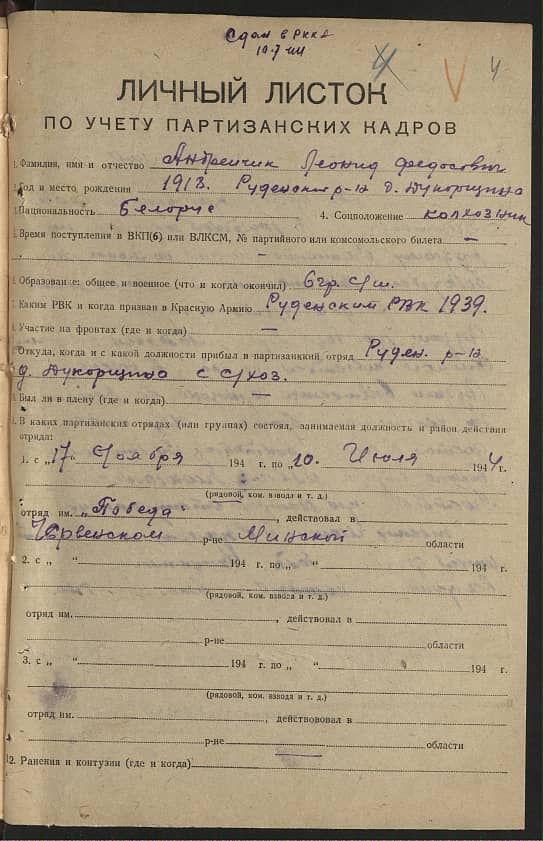 Сдан в РККА
10.7.44
4
ЛИЧНЫЙ ЛИСТОК
ПО УЧЕТУ ПАРТИЗАНСКИХ КАДРОВ
1. Фамилия, имя и отчество Андрейчик Леонид Федосович
Год и место рождения 1913. Руденский р-н д. Дукорщина
Национальность Белорус 4. Соцположение колхозник
Время поступления в ВКП(б) или ВЛКСМ, № партийного или комсомольского билета —
—
Образование: общее и военное (что и когда окончил) 6 гр. с/ш.
Каким РВК и когда призван в Красную Армию Руденским РВК 1939.
Участие на фронтах (где и когда) —
Откуда, когда и с какой должности прибыл в партизанкий отряд Руден. р-на
д. Дукорщина с с/хоз.
Был ли в плену (где и когда) —
В каких партизанских отрядах (или группах) состоял, занимаемая должность и район действия
отряда:
1. с „17“ Ноября 194 г. по „10. Июля 1944 г.
(рядовой, ком. взвода и т. д.)
отряд им. „Победа“, действовал в
Червенском р-не Минской области
2. с „ “ 194 г. по „ “ 194 г.
(рядовой, ком. взвода и т. д.)
отряд им. , действовал в
р-не области
3. с „ “ 194 г. по „ “ 194 г.
(рядовой, ком. взвода и т. д.)
отряд им. , действововал в
р-не области
12. Ранения и контузии (где и когда) —